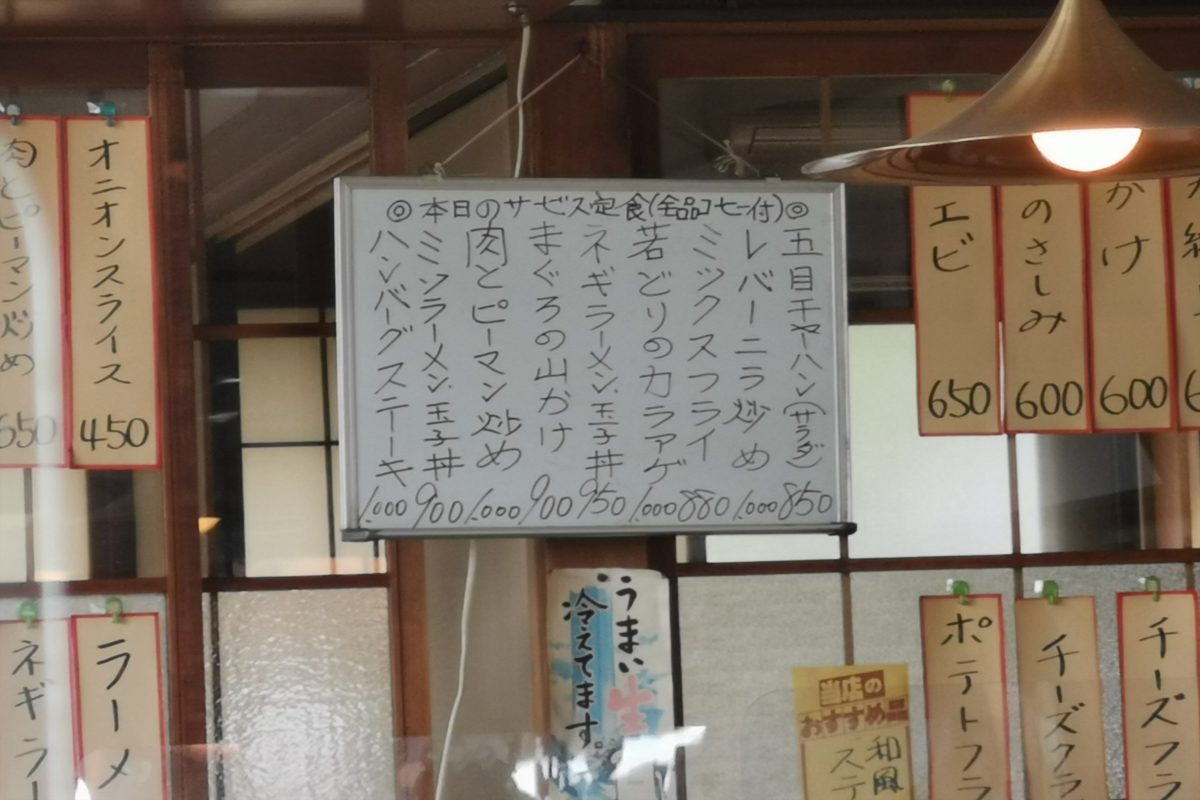 ◎本日のサービス定食(全品コーヒー付)◎
五目チャーハン(サラダ) 850
レバーニラ炒め 1.000
ミックスフライ 880
若どりのカラアゲ 1.000
ネギラーメン.玉子丼 950
まぐろの山かけ 900
肉とピーマン炒め 1.000
ミソラーメン.玉子丼 900
ハンバーグステーキ 1.000
かけ 600
のさしみ 600
エビ 650
オニオンスライス 450
肉とピーマン炒め 650
チーズフラ
チーズクラ
ポテトフラ
当店の
おすすめ
和風
ステ
うまい生
冷えてます。
ラーメ
ネギラー